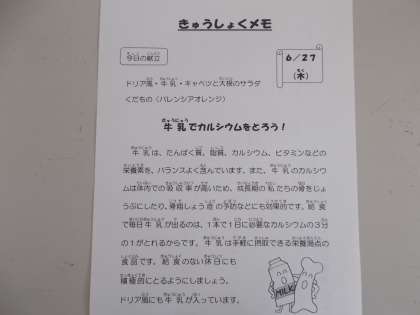 きゅうしょくメモ
今日の献立
6/27
(木)
ドリア風・牛乳・キャベツと大根のサラダ
くだもの(バレンシアオレンジ)
牛乳でカルシウムをとろう!
牛乳は、たんぱく質、脂質、カルシウム、ビタミンなどの
栄養素を、バランスよく含んでいます。また、牛乳のカルシウ
ムは体内での吸収率が高いため、成長期の私たちの骨をじょ
うぶにしたり、骨粗しょう症の予防などにも効果的です。給食
で毎日牛乳が出るのは、1本で1日に必要なカルシウムの3分
の1がとれるからです。牛乳は手軽に摂取できる栄養満点の
食品です。給食のない休日にも
積極的にとるようにしましょう。
ドリア風にも牛乳が入っています。
MILK